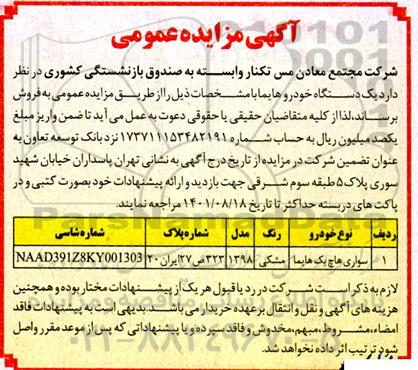 آگهی مزایده عمومی
شرکت مجتمع معادن مس تکنار وابسته به صندوق بازنشستگی کشوری در نظر
دارد یک دستگاه خودرو هایما با مشخصات ذیل را از طریق مزایده عمومی به فروش
برساند، لذا از کلیه متقاضیان حقیقی یا حقوقی دعوت به عمل می آید تا ضمن واریز مبلغ
یکصد میلیون ریال به حساب شماره ۱۷۳۷۱۱۱۵۳۴۸۲۱۹۱ نزد بانک توسعه تعاون به
عنوان تضمین شرکت در مزایده از تاریخ درج آگهی به نشانی تهران پاسداران خیابان شهید
سوری پلاک ۵ طبقه سوم شرقی جهت بازدید و ارائه پیشنهادات خود بصورت کتبی و در
پاکت های دربسته حداکثر تا تاریخ ۱۴۰۱/۰۸/۱۸ مراجعه نمایند.
ردیف نوع خودرو رنگ مدل شماره پلاک شماره شاسی
۱ سواری هاچ بک هایما مشکی ۱۳۹۸ ۳۲۳ص۲۷ ایران ۲۰ NAAD391Z8KY001303
لازم به ذکر است شرکت در رد یا قبول هر یک از پیشنهادات مختار بوده و همچنین
هزینه های آگهی و نقل و انتقال بر عهده خریدار می باشد. بدیهی است به پیشنهادات فاقد
امضاء، مشروط، مبهم، مخدوش و فاقد سپرده و یا پیشنهاداتی که پس از موعد مقرر واصل
شود ترتیب اثر داده نخواهد شد.